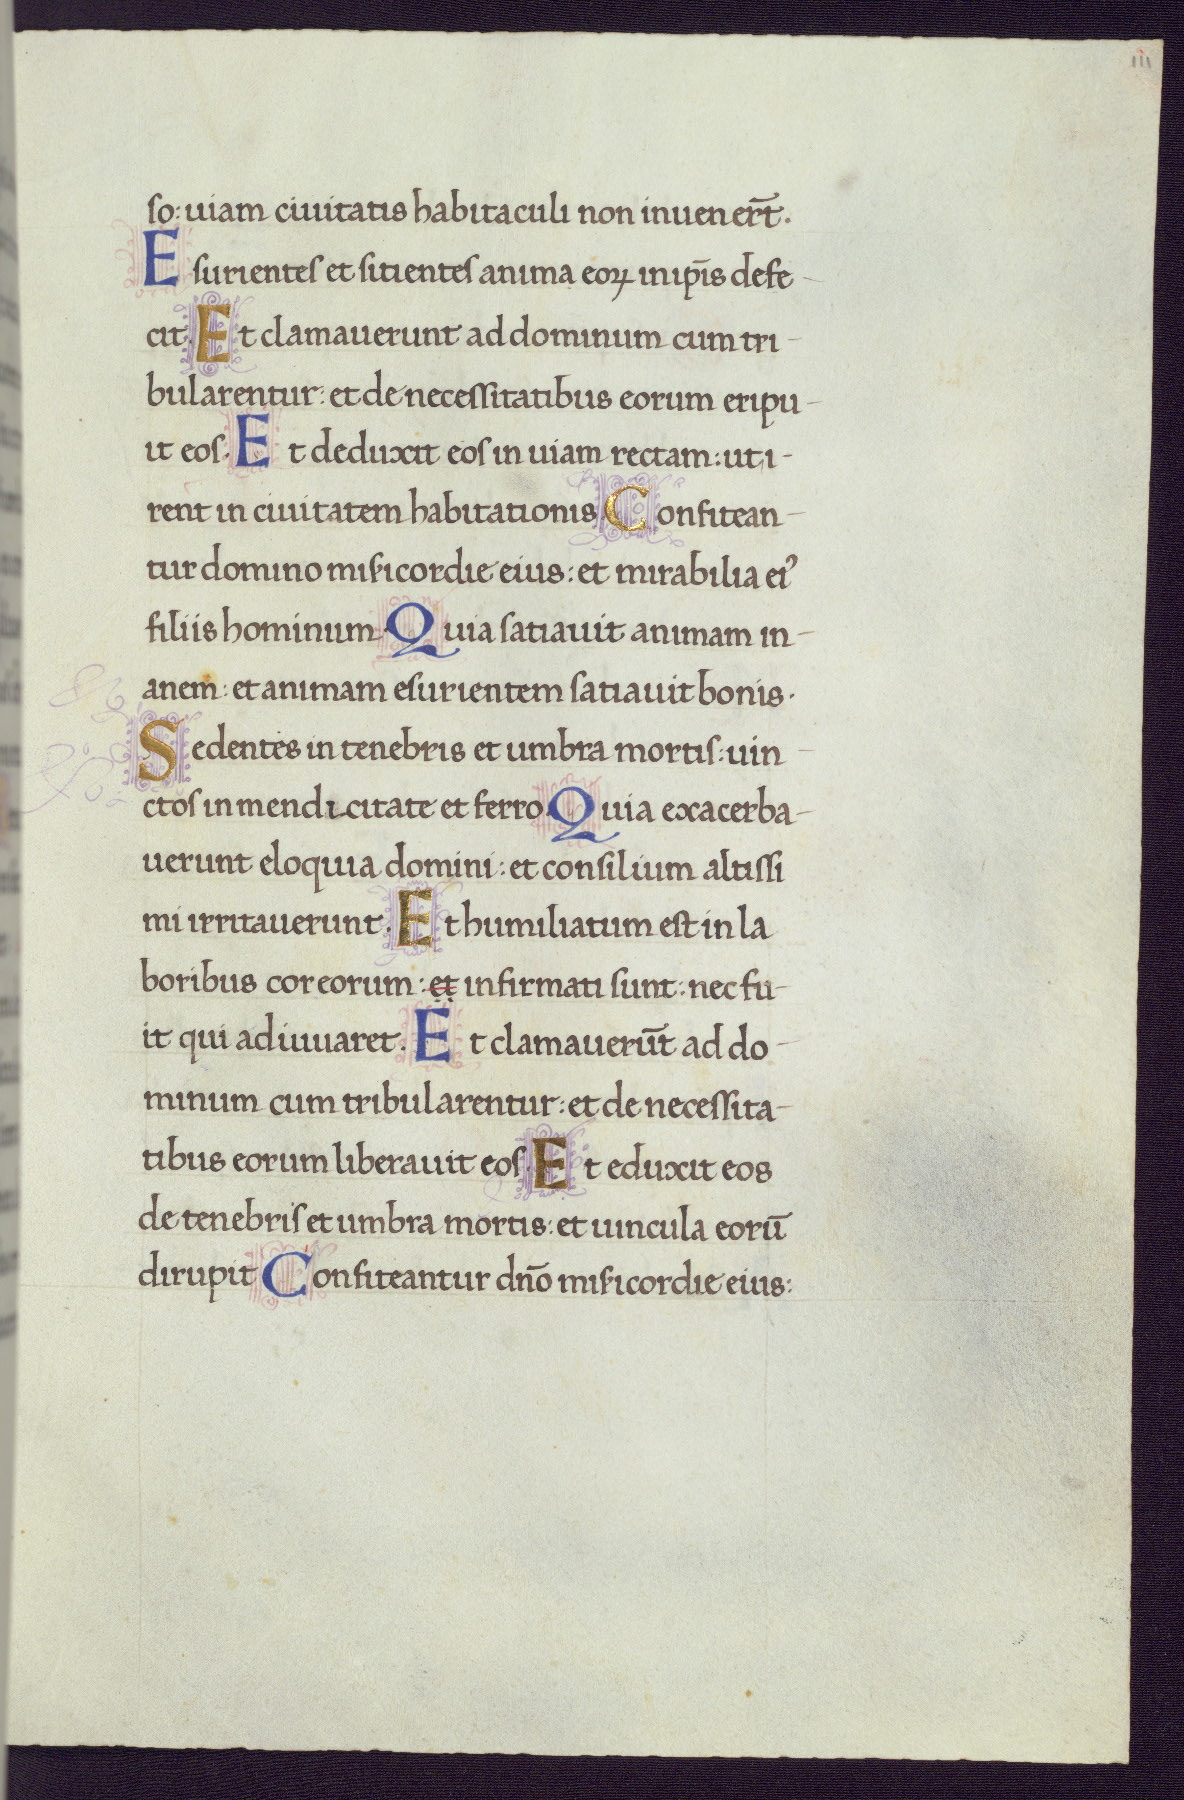 iii
so: uiam ciuitatis habitaculi non inuener̄t.
Esurientes et sitientes anima eoꝝ in ip̄is defe-
cit. Et clamauerunt ad dominum cum tri-
bularentur: et de necessitatibus eorum eripu-
it eos. Et deduxit eos in uiam rectam: ut i-
rent in ciuitatem habitationis. Confitean-
tur domino misericordie eius: et mirabilia ei᾽
filiis hominum. Quia satiauit animam in-
anem: et animam esurientem satiauit bonis.
Sedentes in tenebris et umbra mortis: uin-
ctos in mendicitate et ferro. Quia exacerba-
uerunt eloquia domini: et consilium altissi
mi irritauerunt. Et humiliatum est in la
boribus cor eorum: et infirmati sunt: nec fu-
it qui adiuuaret. Et clamauerūt ad do-
minum cum tribularentur: et de necessita-
tibus eorum liberauit eos. Et eduxit eos
de tenebris et umbra mortis: et uincula eorū
dirupit. Confiteantur dn̄o misericordie eius: